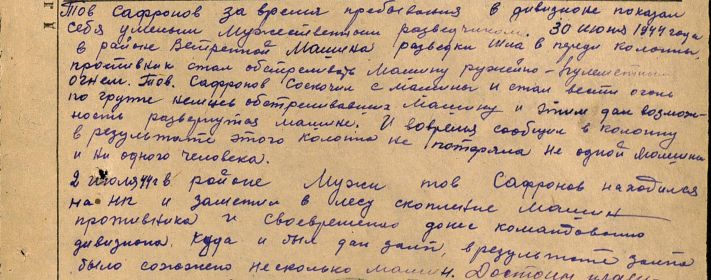 Тов Сафронов за время пребывания в дивизионе показал
себя умелым Мужественным разведчиком. 30 июня 1944 года
в районе Ветретной Машина разведки Шла в переди колонны,
противник стал обстреливать Машину ружейно-пулеметным
огнем. Тов. Сафронов Соскочил с машины и стал вести огонь
по группе немцев обстреливавших Машину и этим дал возмож-
ность развернутся машине. И вовремя сообщил в колонну
в результате этого колонна не потеряла не одной Машины
и ни одного человека.
2 июля 44г в районе Мужи тов Сафронов находился
на НП и заметил в лесу скопление Машин
противника и своевременно донес командованию
дивизиона. Куда и был дан залп, в результате залпа
было сожжено несколько машин. Достоин